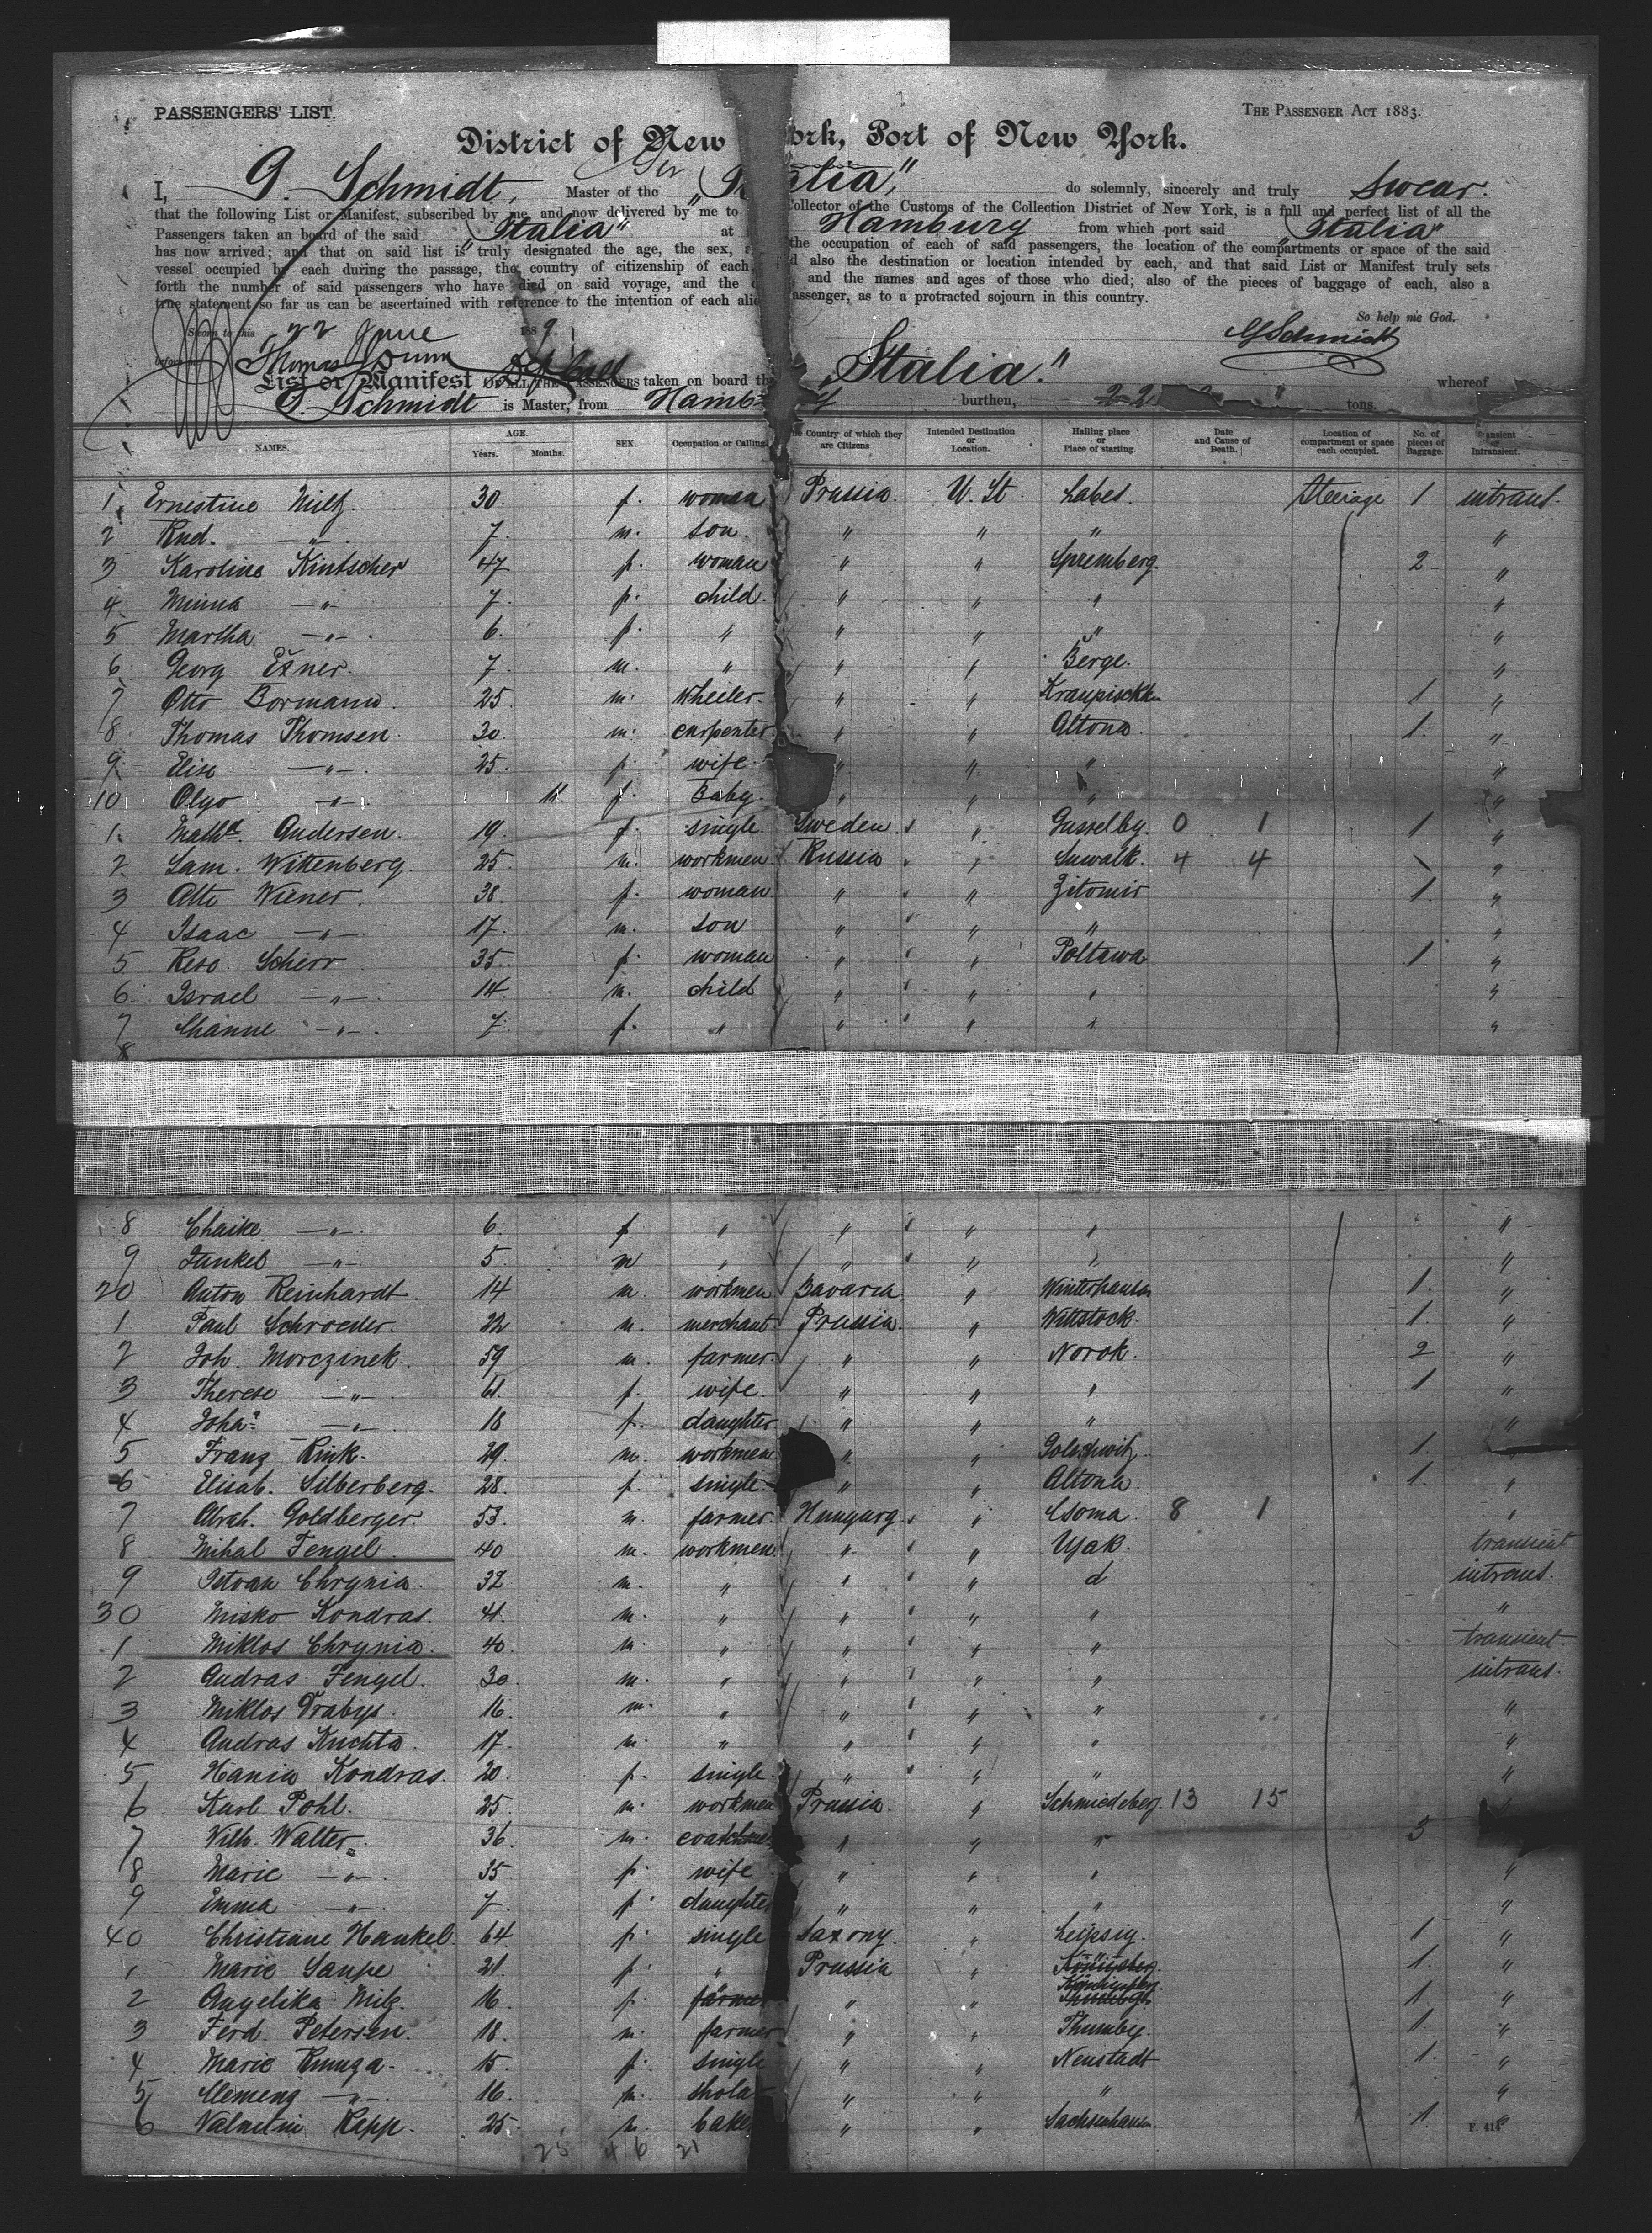 PASSENGERS' LIST.
THE PASSENGER ACT 1883.
District of New York, Port of New York.
I, G. Schmidt, Master of the Ger „Italia," do solemnly, sincerely and truly Swear.
that the following List or Manifest, subscribed by me, and now delivered by me to Collector of the Customs of the Collection District of New York, is a full and perfect list of all the
Passengers taken an board of the said „Italia" at Hamburg from which port said „Italia"
has now arrived; and that on said list is truly designated the age, the sex, the occupation of each of said passengers, the location of the compartments or space of the said
vessel occupied by each during the passage, the country of citizenship of each also the destination or location intended by each, and that said List or Manifest truly sets
forth the number of said passengers who have died on said voyage, and the and the names and ages of those who died; also of the pieces of baggage of each, also a
true statement so far as can be ascertained with reference to the intention of each alien passenger, as to a protracted sojourn in this country.
Sworn to this 22 June 1889
So help me God.
before me Thomas Dunn
G Schmidt
List or Manifest OF ALL THE PASSENGERS taken on board the „Italia." whereof
G. Schmidt is Master, from Hamburg burthen, tons.
NAMES. AGE. Years. Months. SEX. Occupation or Calling. The Country of which they are Citizens Intended Destination or Location. Hailing place or Place of starting. Date and Cause of Death. Location of compartment or space each occupied. No. of pieces of Baggage. Transient or Intransient.
1 Ernestine Miltz 30. f. woman Prussia U. St Labes. Steerage 1 intrans.
2 Rud. —"— 7. m. son. " " " "
3 Karoline Kintscher 47 f. woman " " Spremberg. 2 "
4 Minna —"— 7. f. child. " " " "
5 Martha —"— 6. f. " " " " "
6 Georg Exner. 7. m. " " " Berge. "
7 Otto Bormann. 25. m. wheeler. " " Kraupischken 1 "
8 Thomas Thomsen. 30. m. carpenter " " Altona. 1. "
9 Elise —"— 25. f. wife. " " " "
10 Olga —"— 11. f. Baby. " " " "
1. Mathe Andersen. 19. f. single Sweden " Gusselby. 0 1 1 "
2 Sam. Wittenberg. 25. m. workmen Russia " Suwalk. 4 4 \ "
3 Alte Wiener. 38. f. woman " " Zitomir 1. "
4 Isaac —"— 17. m. son " " " "
5 Reso Scherr 35. f. woman " " Poltawa 1 "
6 Israel —"— 14. m. child " " " "
7 Channe —"— 7. f. " " " " "
8
8 Chaike —"— 6. f " " " " "
9 Jankel —"— 5. m " " " " "
20 Anton Reinhardt. 14 m. workmen Bavaria " Winterhausen 1. "
1 Paul Schroeder. 22 m. merchant Prussia. " Wittstock. 1. "
2 Joh. Morczinek. 59 m. farmer. " " Norok. 2 "
3 Therese —"— 61. f. wife. " " " 1 "
4 Joha. —"— 18 f. daughter " " " "
5 Franz Rink. 29. m. workmen " " 1.
6 Elisab. Silberberg. 28. f. single " " Altona. 1. "
7 Abrah. Goldberger. 53. m. farmer. Hungarg. " Csoma. 8 1 "
8 Mihal Fengel. 40 m. workmen " " Ujak. transient
9 Istvan Chrynia. 32 m. " " " d intrans.
30 Misko Kondras. 41. m. " " " " "
1 Miklos Chrynia. 40. m. " " " " transient
2 Andras Fengel. 30. m. " " " " intrans.
3 Miklos Drabys. 16. m. " " " " "
4 Andras Kuchta. 17. m. " " " " "
5 Hania Kondras. 20. f. single " " " "
6 Karl Pohl. 25. m. workmen Prussia. " Schmiedeberg. 13 15
7 Wilh. Walter. 36. m. coatchmen " " " 3
8 Marie —"— 35. f. wife " " " "
9 Emma —"— 7. f. daughter " " " "
40 Christiane Hankel. 64. f. single Saxony. " Leipsig. 1 "
1 Marie Saupe 21. f. " Prussia " Königsberg. 1. "
2 Angelika Milz. 16. f. farmer " " Königsberg 1. "
3 Ferd. Petersen. 18. m. farmer " " Thumby. 1. "
4 Marie Rmuza. 15. f. single " " Neustadt 1. "
5 Clemenz —"— 16. m. shola " " " "
6 Valentin Rapp. 25. m. baker " " Sachsenhausen. 1. "
25 46 21
F. 418